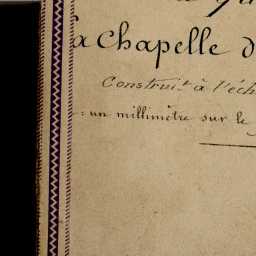 a Chapelle d
Construit à l'éch
un millimètre sur le